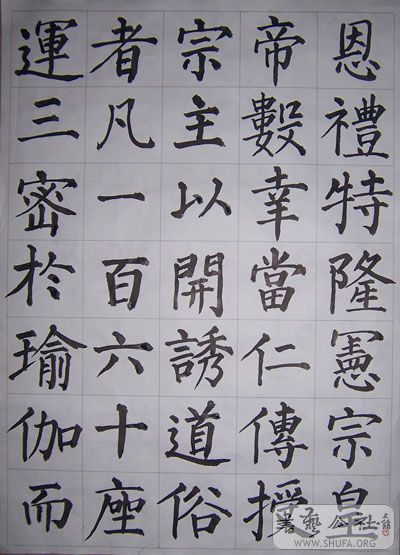 恩禮特隆憲宗皇
帝數幸當仁傳授
宗主以開誘道俗
者凡一百六十座
運三密於瑜伽而
書藝公社
WWW.SHUFA.ORG